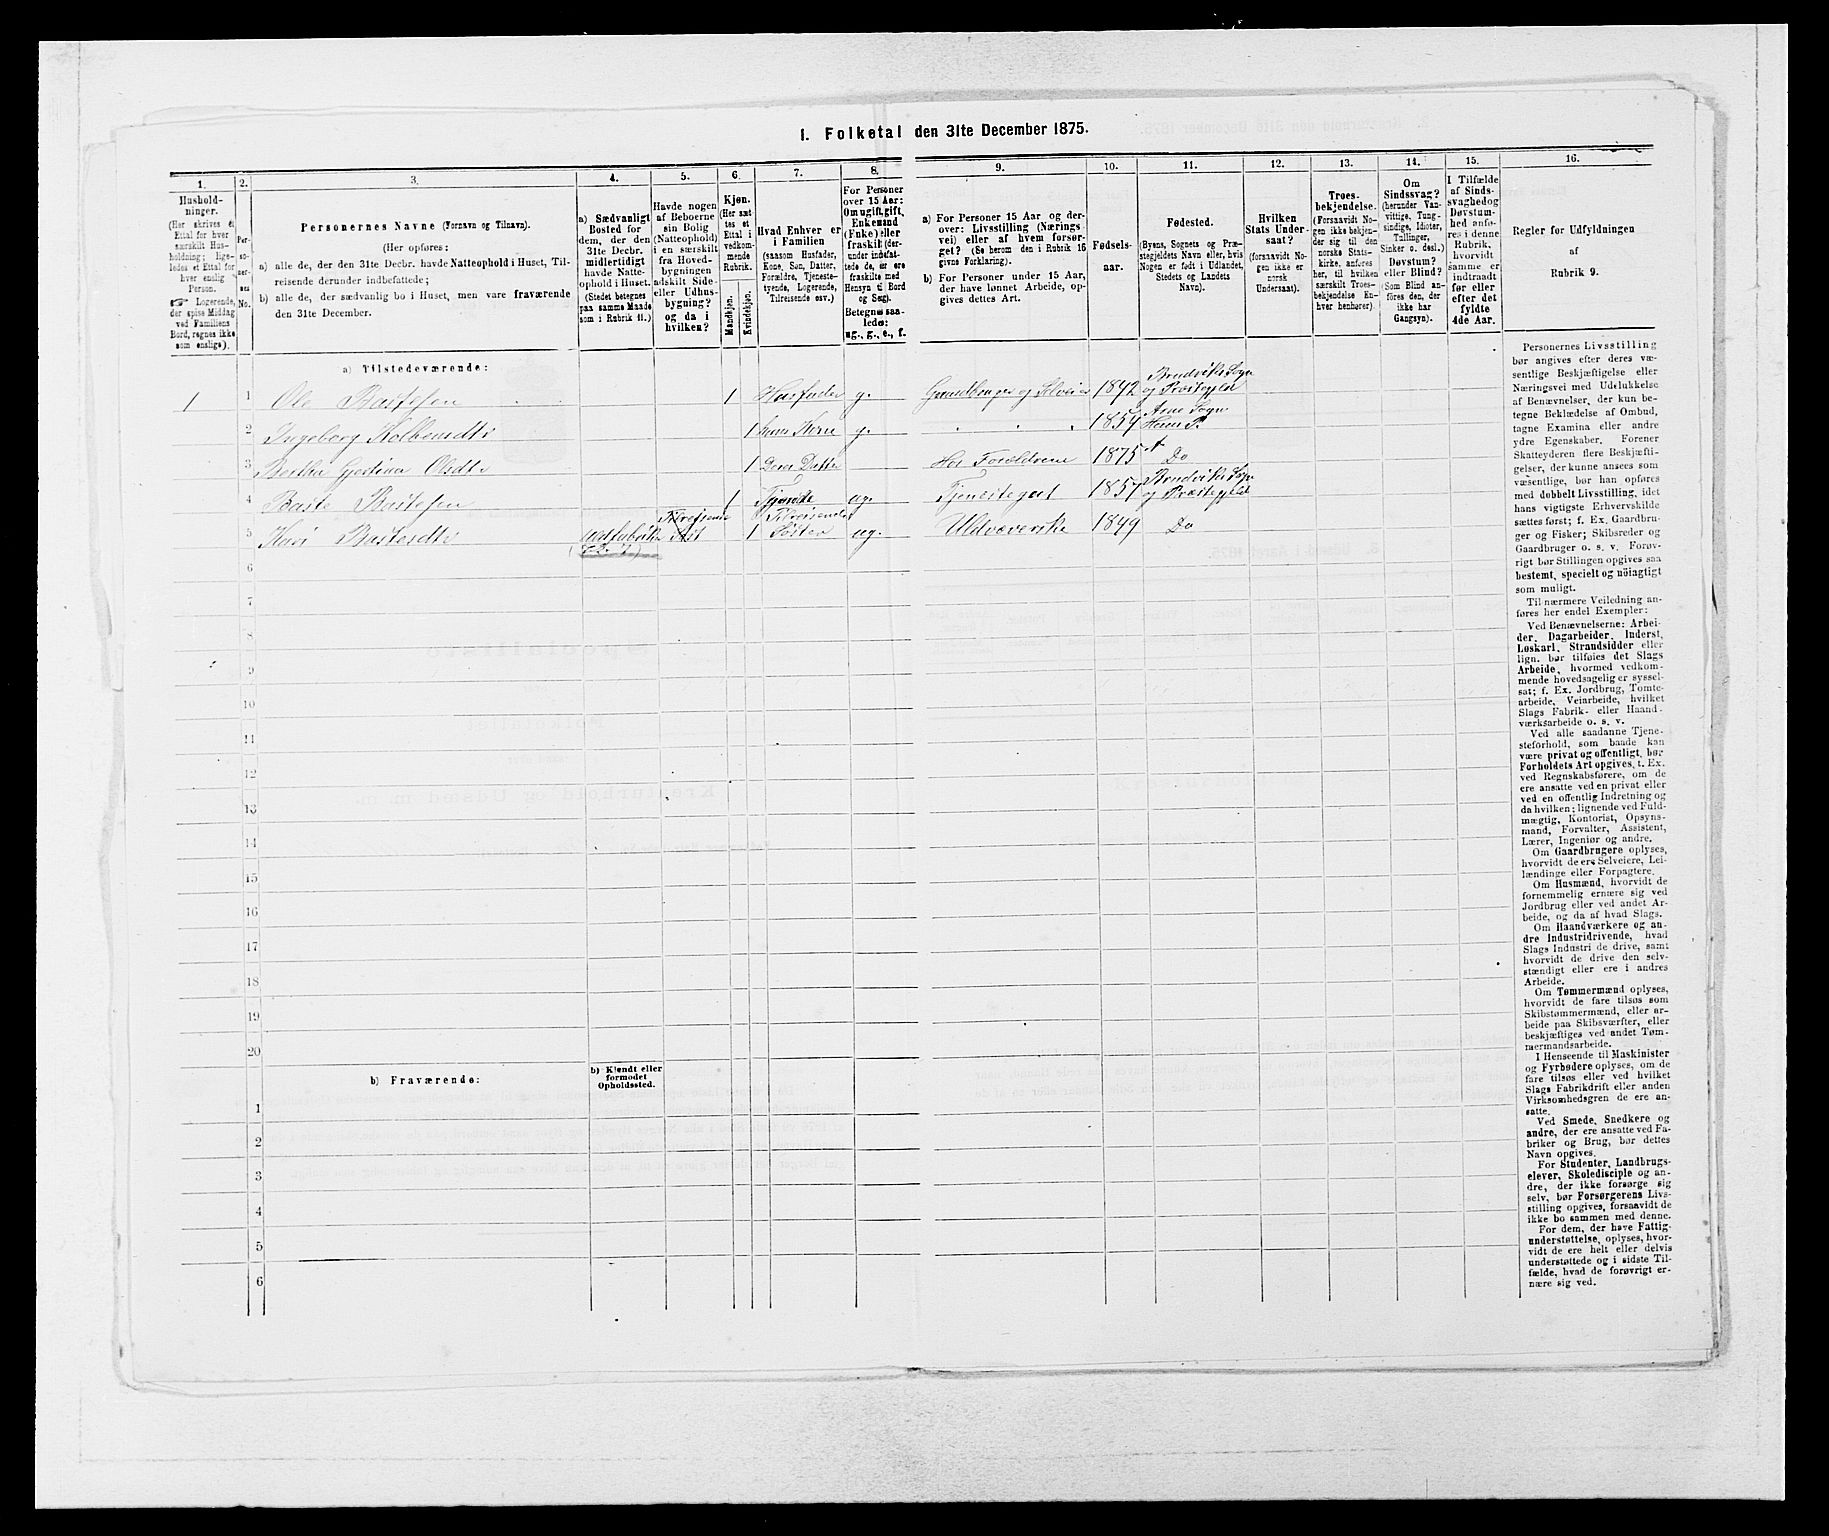 1. Folketal den 31te December 1875.
1.
2.
3.
4.
5.
6.
7.
8.
9.
10.
11.
12.
13.
14.
15.
16.
Hushold-
ninger.
(Her skrives et
Ettal for hver
særskilt Hus-
holdning; lige-
ledes et Ettal for
hver enslig
Person.
☞ Logerende,
der spise Middag
ved Familiens
Bord, regnes ikke
som enslige).
Per-
so-
ner-
nes
No.
Personernes Navne (Fornavn og Tilnavn).
(Her opføres:
a) alle de, der den 31te Decbr. havde Natteophold i Huset, Til-
reisende derunder indbefattede;
b) alle de, der sædvanlig bo i Huset, men vare fraværende
den 31te December.
a) Sædvanligt
Bosted for
dem, der den
31te Decbr.
midlertidigt
havde Natte-
ophold i Huset.
(Stedet betegnes
paa samme Maade
som i Rubrik 11.)
Havde nogen
af Beboerne
sin Bolig
(Natteophold)
i en særskilt
fra Hoved-
bygningen
adskilt Side-
eller Udhus-
bygning?
og da i
hvilken?
Kjøn.
(Her sæt-
tes et
Ettal i
vedkom-
mende
Rubrik.
Mandkjøn.
Kvindekjøn.
Hvad Enhver er
i Familien
(saasom Husfader,
Kone, Søn, Datter,
Forældre, Tjeneste-
tyende, Logerende,
Tilreisende osv.)
For Personer
over 15 Aar:
Om ugift, gift,
Enkemand
(Enke) eller
fraskilt (der-
under indbefat-
tede de, der ere
fraskilte med
Hensyn til Bord
og Seng).
Betegnes saa-
ledes:
ug., g., e., f.
a) For Personer 15 Aar og der-
over: Livsstilling (Nærings-
vei) eller af hvem forsør-
get? (Se herom den i Rubrik 16
givne Forklaring).
b) For Personer under 15 Aar,
der have lønnet Arbeide, op-
gives dettes Art.
Fødsels-
aar.
Fødested.
(Byens, Sognets og Præ-
stegjeldets Navn eller, hvis
Nogen er født i Udlandet,
Stedets og Landets
Navn).
Hvilken
Stats Under-
saat?
(forsaavidt No-
gen ikke er
norsk
Undersaat).
Troes-
bekjendelse.
(Forsaavidt No-
gen ikke bekjen-
der sig til den
norske Stats-
kirke, anføres
her, til hvilken
særskilt Troes-
bekjendelse En-
hver henhører).
Om
Sindssvag?
(herunder Van-
vittige, Tung-
sindige, Idioter,
Tullinger,
Sinker o. desl.)
Døvstum?
eller Blind?
(Som Blind an-
føres den, der
ikke har
Gangsyn).
I Tilfælde
af Sinds-
svaghed og
Døvstum-
hed anfø-
res i denne
Rubrik,
hvorvidt
samme er
indtraadt
før eller
efter det
fyldte
4de Aar.
Regler for Udfyldningen
af
Rubrik 9.
a) Tilstedeværende:
1 1 Ole Bastesen 1 Husfader g. Gaardbruger og Selveier 1842 Brudviks Sogn
og Præstegjeld
2 Ingeborg Kolbensdtr 1 hans Kone g. " " " 1854 Arne Sogn
P.
3 Bertha Gjertina Olsdtr 1 Deres Datter Hos Forældrene 1875 Do
4 Baste Bastesen 1 Tjener ug. Tjenestegut 1857 Brudviks Sogn
og Præstegjeld
5 Kari Bastesdtr 1 Tilreisende
Søster ug. Uldvæverske 1849 Do
6
7
8
9
10
11
12
13
14
15
16
17
18
19
20
b) Fraværende:
b) Kjendt eller
formodet
Opholdssted.
1
2
3
4
5
6
Personernes Livsstilling
bør angives efter deres væ-
sentlige Beskjæftigelse eller
Næringsvei med Udelukkelse
af Benævnelser, der kun be-
tegne Beklædelse af Ombud,
tagne Examina eller andre
ydre Egenskaber. Forener
Skatteyderen flere Beskjæfti-
gelser, der kunne ansees som
væsentlige, bør han opføres
med dobbelt Livsstilling, idet
hans vigtigste Erhvervskilde
sættes først; f. Ex. Gaardbru-
ger og Fisker; Skibsreder og
Gaardbruger o. s. v. Forøv-
rigt bør Stillingen opgives saa
bestemt, specielt og nøiagtigt
som muligt.
Til nærmere Veiledning an-
føres her endel Exempler:
Ved Benævnelserne: Arbei-
der, Dagarbeider, Inderst,
Løskarl, Strandsidder eller
lign. bør tilføies det Slags
Arbeide, hvormed vedkom-
mende hovedsagelig er syssel-
sat; f. Ex. Jordbrug, Tomte-
arbeide, Veiarbeide, hvilket
Slags Fabrik- eller Haand-
værksarbeide o. s. v.
Ved alle saadanne Tjene-
steforhold, som baade kan
være privat og offentligt, bør
Forholdets Art opgives, t. Ex.
ved Regnskabsførere, om de
ere ansatte ved en privat eller
ved en offentlig Indretning og
da hvilken; lignende ved Fuld-
mægtig, Kontorist, Opsyns-
mand, Forvalter, Assistent,
Lærer, Ingeniør og andre.
Om Gaardbrugere oplyses,
hvorvidt de ere Selveiere, Lei-
lændinge eller Forpagtere.
Om Husmænd, hvorvidt de
fornemmelig ernære sig ved
Jordbrug eller ved andet Ar-
beide, og da af hvad Slags.
Om Haandværkere og an-
dre Industridrivende, hvad
Slags Industri de drive, samt
hvorvidt de drive den selv-
stændigt eller ere i andres
Arbeide.
Om Tømmermænd oplyses,
hvorvidt de fare tilsøs som
Skibstømmermænd, eller ar-
beide paa Skibsværfter, eller
beskjæftiges ved andet Tøm-
mermandsarbeide.
I Henseende til Maskinister
og Fyrbødere oplyses, om de
fare tilsøs eller ved hvilket
Slags Fabrikdrift eller anden
Virksomhedsgren de ere an-
satte.
Ved Smede, Snedkere og
andre, der ere ansatte ved Fa-
briker og Brug, bør dettes
Navn opgives.
For Studenter, Landbrugs-
elever, Skoledisciple og an-
dre, der ikke forsørge sig
selv, bør Forsørgerens Livs-
stilling opgives, forsaavidt de
ikke bo sammen med denne.
For dem, der have Fattig-
understøttelse, oplyses, hvor-
vidt de ere helt eller delvis
understøttede og i sidste Til-
fælde, hvad de forøvrigt er-
nære sig ved.